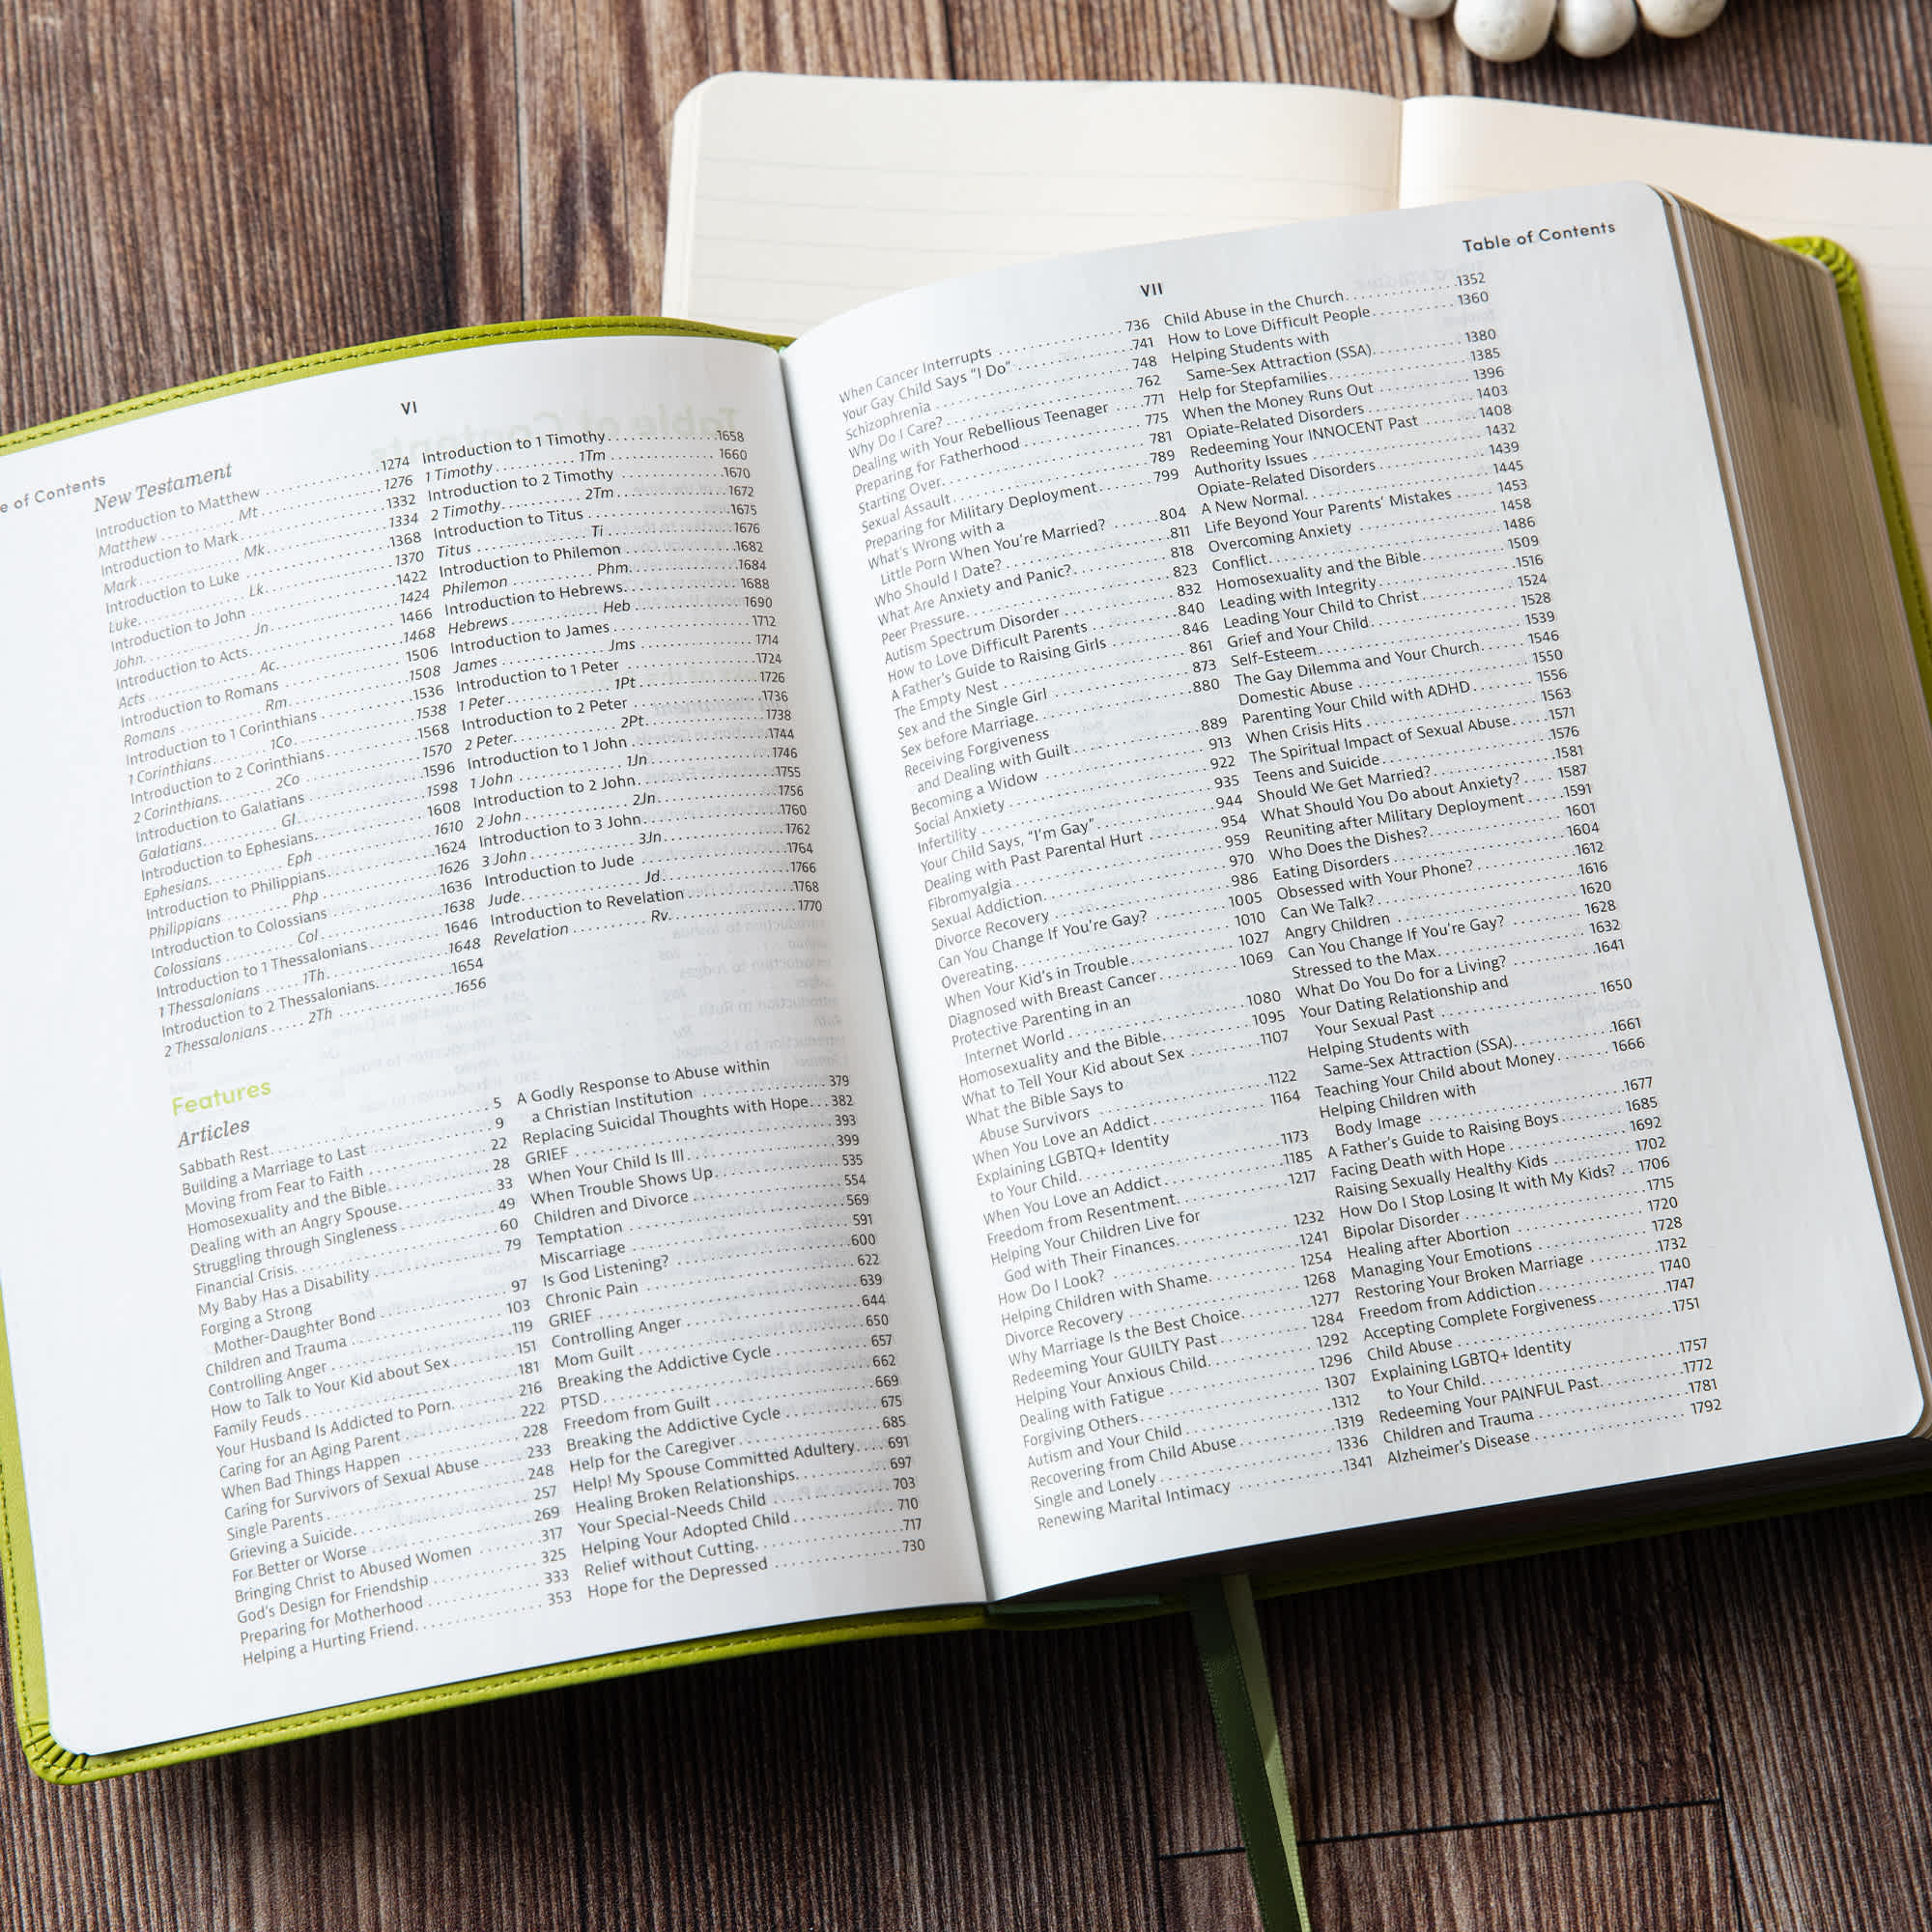 e of Contents
VI
New Testament
Introduction to Matthew 1274
Matthew Mt 1276
Introduction to Mark 1332
Mark Mk 1334
Introduction to Luke 1368
Luke Lk 1370
Introduction to John 1422
John Jn 1424
Introduction to Acts 1466
Acts Ac 1468
Introduction to Romans 1506
Romans Rm 1508
Introduction to 1 Corinthians 1536
1 Corinthians 1Co 1538
Introduction to 2 Corinthians 1568
2 Corinthians 2Co 1570
Introduction to Galatians 1596
Galatians Gl 1598
Introduction to Ephesians 1608
Ephesians Eph 1610
Introduction to Philippians 1624
Philippians Php 1626
Introduction to Colossians 1636
Colossians Col 1638
Introduction to 1 Thessalonians 1646
1 Thessalonians 1Th 1648
Introduction to 2 Thessalonians 1654
2 Thessalonians 2Th 1656
Introduction to 1 Timothy 1658
1 Timothy 1Tm 1660
Introduction to 2 Timothy 1670
2 Timothy 2Tm 1672
Introduction to Titus 1675
Titus Ti 1676
Introduction to Philemon 1682
Philemon Phm 1684
Introduction to Hebrews 1688
Hebrews Heb 1690
Introduction to James 1712
James Jms 1714
Introduction to 1 Peter 1724
1 Peter 1Pt 1726
Introduction to 2 Peter 1736
2 Peter 2Pt 1738
Introduction to 1 John 1744
1 John 1Jn 1746
Introduction to 2 John 1755
2 John 2Jn 1756
Introduction to 3 John 1760
3 John 3Jn 1762
Introduction to Jude 1764
Jude Jd 1766
Introduction to Revelation 1768
Revelation Rv 1770
Features
Articles
Sabbath Rest 5
Building a Marriage to Last 9
Moving from Fear to Faith 22
Homosexuality and the Bible 28
Dealing with an Angry Spouse 33
Struggling through Singleness 49
Financial Crisis 60
My Baby Has a Disability 79
Forging a Strong
Mother-Daughter Bond 97
Children and Trauma 103
Controlling Anger 119
How to Talk to Your Kid about Sex 151
Family Feuds 181
Your Husband Is Addicted to Porn 216
Caring for an Aging Parent 222
When Bad Things Happen 228
Caring for Survivors of Sexual Abuse 233
Single Parents 248
Grieving a Suicide 257
For Better or Worse 269
Bringing Christ to Abused Women 317
God's Design for Friendship 325
Preparing for Motherhood 333
Helping a Hurting Friend 353
A Godly Response to Abuse within
a Christian Institution 379
Replacing Suicidal Thoughts with Hope 382
GRIEF 393
When Your Child Is Ill 399
When Trouble Shows Up 535
Children and Divorce 554
Temptation 569
Miscarriage 591
Is God Listening? 600
Chronic Pain 622
GRIEF 639
Controlling Anger 644
Mom Guilt 650
Breaking the Addictive Cycle 657
PTSD 662
Freedom from Guilt 669
Breaking the Addictive Cycle 675
Help for the Caregiver 685
Help! My Spouse Committed Adultery 691
Healing Broken Relationships 697
Your Special-Needs Child 703
Helping Your Adopted Child 710
Relief without Cutting 717
Hope for the Depressed 730
VII
Table of Contents
When Cancer Interrupts 736
Your Gay Child Says "I Do" 741
Schizophrenia 748
Why Do I Care? 762
Dealing with Your Rebellious Teenager 771
Preparing for Fatherhood 775
Starting Over 781
Sexual Assault 789
Preparing for Military Deployment 799
What's Wrong with a
Little Porn When You're Married? 804
Who Should I Date? 811
What Are Anxiety and Panic? 818
Peer Pressure 823
Autism Spectrum Disorder 832
How to Love Difficult Parents 840
A Father's Guide to Raising Girls 846
The Empty Nest 861
Sex and the Single Girl 873
Sex before Marriage 880
Receiving Forgiveness
and Dealing with Guilt 889
Becoming a Widow 913
Social Anxiety 922
Infertility 935
Your Child Says, "I'm Gay" 944
Dealing with Past Parental Hurt 954
Fibromyalgia 959
Sexual Addiction 970
Divorce Recovery 986
Can You Change If You're Gay? 1005
Overeating 1010
When Your Kid's in Trouble 1027
Diagnosed with Breast Cancer 1069
Protective Parenting in an
Internet World 1080
Homosexuality and the Bible 1095
What to Tell Your Kid about Sex 1107
What the Bible Says to
Abuse Survivors 1122
When You Love an Addict 1164
Explaining LGBTQ+ Identity
to Your Child 1173
When You Love an Addict 1185
Freedom from Resentment 1217
Helping Your Children Live for
God with Their Finances 1232
How Do I Look? 1241
Helping Children with Shame 1254
Divorce Recovery 1268
Why Marriage Is the Best Choice 1277
Redeeming Your GUILTY Past 1284
Helping Your Anxious Child 1292
Dealing with Fatigue 1296
Forgiving Others 1307
Autism and Your Child 1312
Recovering from Child Abuse 1319
Single and Lonely 1336
Renewing Marital Intimacy 1341
Child Abuse in the Church 1352
How to Love Difficult People 1360
Helping Students with
Same-Sex Attraction (SSA) 1380
Help for Stepfamilies 1385
When the Money Runs Out 1396
Opiate-Related Disorders 1403
Redeeming Your INNOCENT Past 1408
Authority Issues 1432
Opiate-Related Disorders 1439
A New Normal 1445
Life Beyond Your Parents' Mistakes 1453
Overcoming Anxiety 1458
Conflict 1486
Homosexuality and the Bible 1509
Leading with Integrity 1516
Leading Your Child to Christ 1524
Grief and Your Child 1528
Self-Esteem 1539
The Gay Dilemma and Your Church 1546
Domestic Abuse 1550
Parenting Your Child with ADHD 1556
When Crisis Hits 1563
The Spiritual Impact of Sexual Abuse 1571
Teens and Suicide 1576
Should We Get Married? 1581
What Should You Do about Anxiety? 1587
Reuniting after Military Deployment 1591
Who Does the Dishes? 1601
Eating Disorders 1604
Obsessed with Your Phone? 1612
Can We Talk? 1616
Angry Children 1620
Can You Change If You're Gay? 1628
Stressed to the Max 1632
What Do You Do for a Living? 1641
Your Dating Relationship and
Your Sexual Past 1650
Helping Students with
Same-Sex Attraction (SSA) 1661
Teaching Your Child about Money 1666
Helping Children with
Body Image 1677
A Father's Guide to Raising Boys 1685
Facing Death with Hope 1692
Raising Sexually Healthy Kids 1702
How Do I Stop Losing It with My Kids? 1706
Bipolar Disorder 1715
Healing after Abortion 1720
Managing Your Emotions 1728
Restoring Your Broken Marriage 1732
Freedom from Addiction 1740
Accepting Complete Forgiveness 1747
Child Abuse 1751
Explaining LGBTQ+ Identity
to Your Child 1757
Redeeming Your PAINFUL Past 1772
Children and Trauma 1781
Alzheimer's Disease 1792